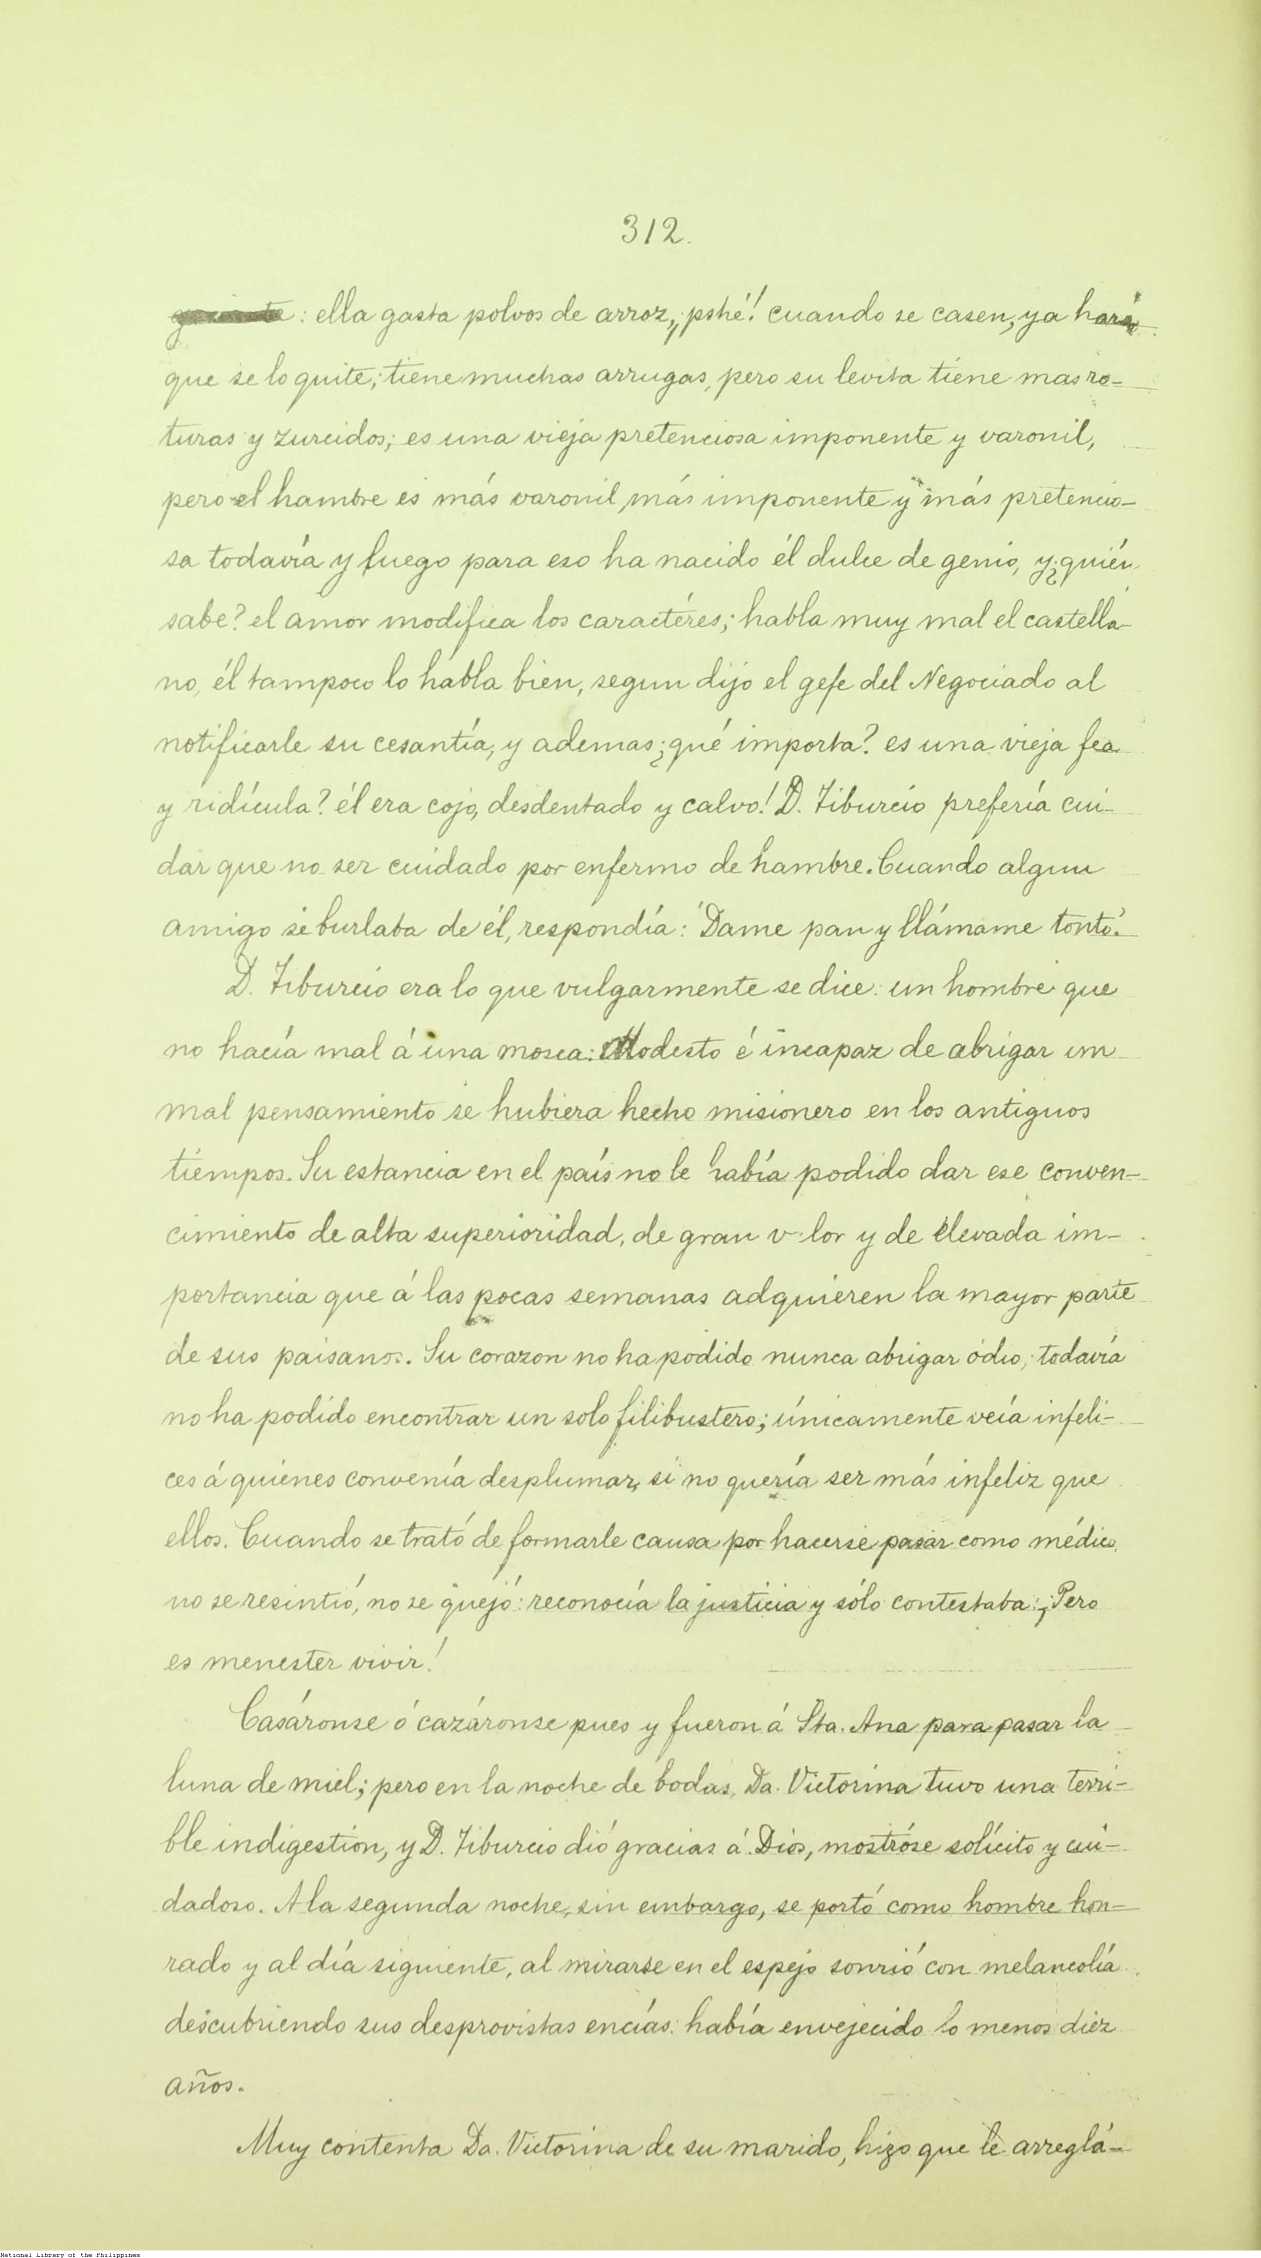 312.
: ella gasta polvos de arroz, ¡pshé! cuando se casen, ya hará
que se lo quite; tiene muchas arrugas, pero su levita tiene mas ro-
turas y zurcidos; es una vieja pretenciosa imponente y varonil,
pero el hambre es más varonil, más imponente y más pretencio-
sa todavía y fuego para eso ha nacido él dulce de genio, y ¿quién
sabe? el amor modifica los caractéres; habla muy mal el castella-
no, él tampoco lo habla bien, segun dijo el gefe del Negociado al
notificarle su cesantía, y ademas ¿qué importa? es una vieja fea
y ridícula? él era cojo, desdentado y calvo! D. Tiburcio prefería cui-
dar que no ser cuidado por enfermo de hambre. Cuando algun
amigo se burlaba de él, respondía: "Dame pan y llámame tonto".
D. Tiburcio era lo que vulgarmente se dice: un hombre que
no hacía mal á una mosca: Modesto é incapaz de abrigar un
mal pensamiento se hubiera hecho misionero en los antiguos
tiempos. Su estancia en el país no le había podido dar ese conven-
cimiento de alta superioridad, de gran v lor y de elevada im-
portancia que á las pocas semanas adquieren la mayor parte
de sus paisanos. Su corazon no ha podido nunca abrigar ódio; todavía
no ha podido encontrar un solo filibustero; únicamente veía infeli-
ces á quienes convenía desplumar, si no quería ser más infeliz que
ellos. Cuando se trató de formarle causa por hacerse pasar como médico,
no se resintió, no se quejó: reconocía la justicia y sólo contestaba: ¡Pero
es menester vivir!
Casáronse ó cazáronse pues y fueron á Sta. Ana para pasar la
luna de miel; pero en la noche de bodas, Da. Victorina tuvo una terri-
ble indigestion, y D. Tiburcio dió gracias á Dios, mostróse solícito y cui-
dadoso. A la segunda noche, sin embargo, se portó como hombre hon-
rado y al día siguiente, al mirarse en el espejo sonrió con melancolía
descubriendo sus desprovistas encías: había envejecido lo menos diez
años.
Muy contenta Da. Victorina de su marido, hizo que le arreglá-
National Library of the Philippines